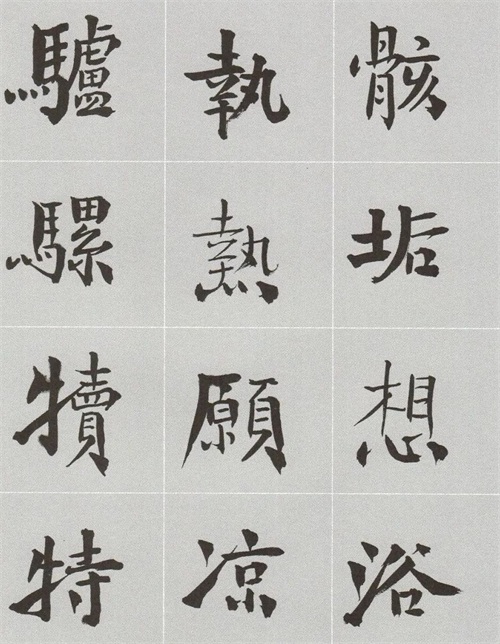 骸垢想浴
執熱願凉
驢騾犢特